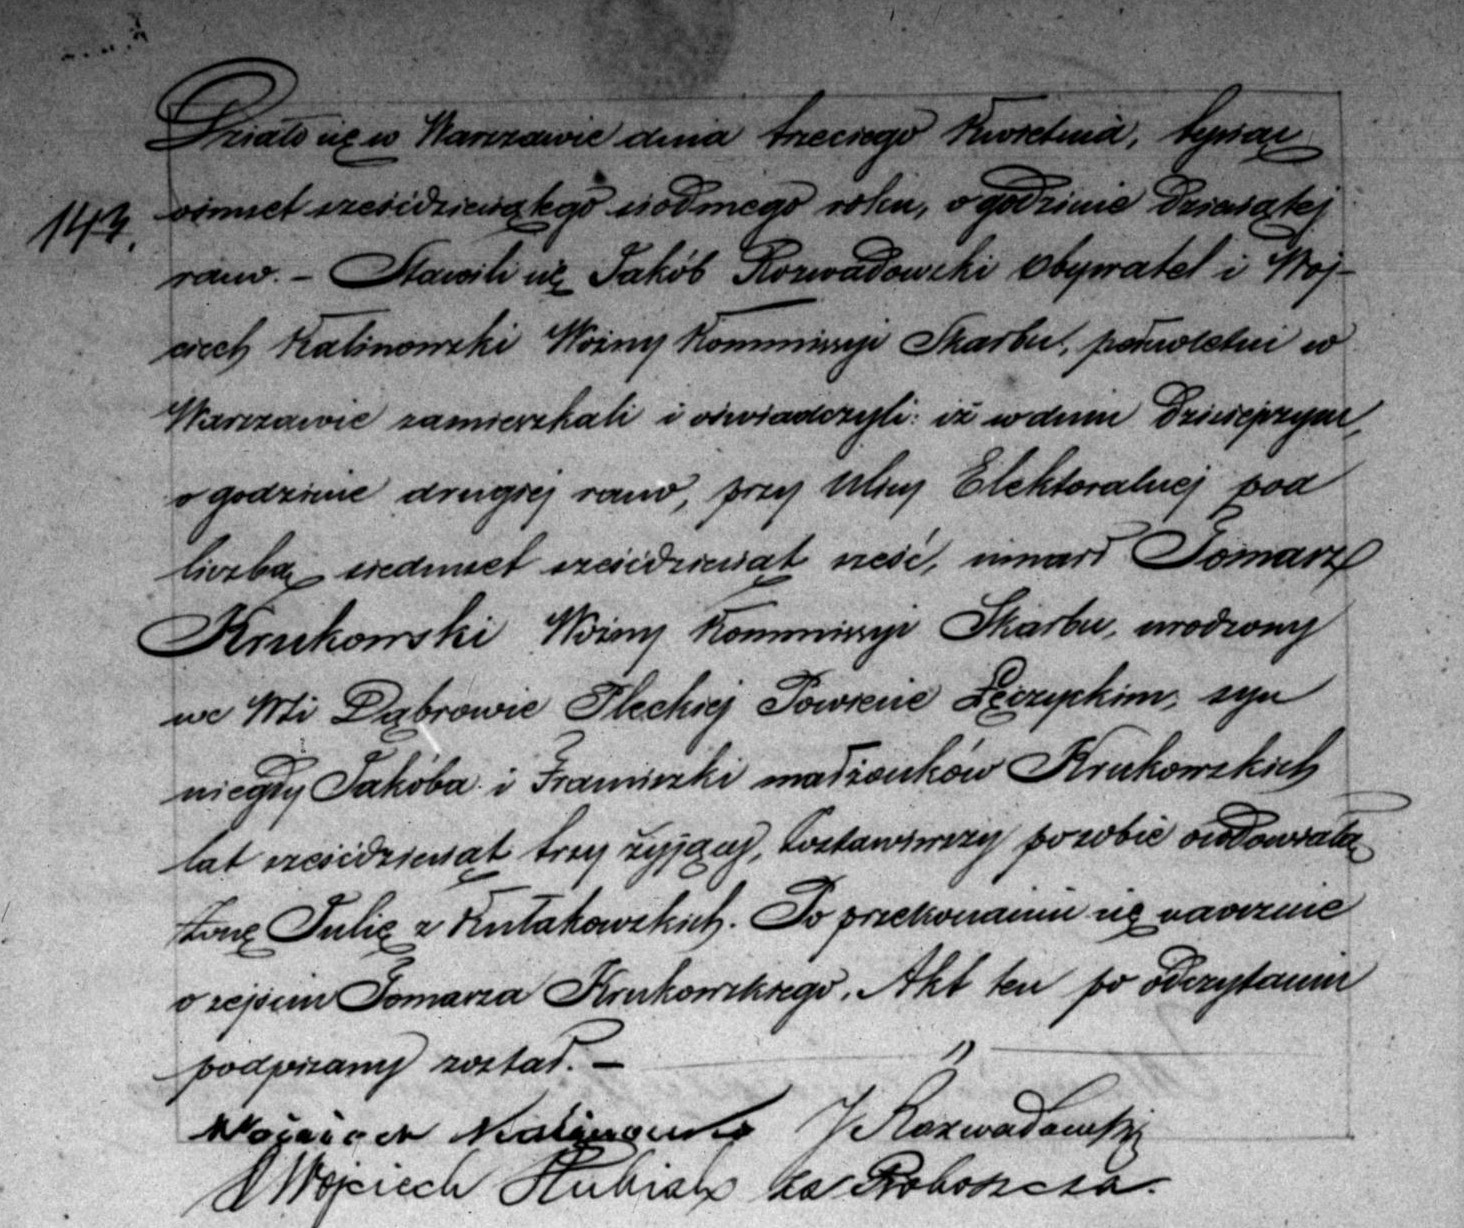 143.
Działo się w Warszawie dnia trzeciego Kwietnia, tysiąc
ośmset sześćdziesiątego siódmego roku, o godzinie dziesiątej
rano. – Stawili się Jakób Rozwadowski Obywatel i Woj-
ciech Kalinowski Woźny Kommissyi Skarbu, pełnoletni w
Warszawie zamieszkali i oświadczyli: iż w dniu dzisiejszym,
o godzinie drugiej rano, przy Ulicy Elektoralnej pod
liczbą siedmset sześćdziesiąt sześć, umarł Tomasz
Krukowski Woźny Kommissyi Skarbu, urodzony
we Wsi Dąbrowie Powiecie Łęczyckim, syn
niegdy Jakóba i Franciszki małżonków Krukowskich
lat sześćdziesiąt trzy żyjący, Zostawiwszy po sobie owdowiałą
Żonę Julię z Kułakowskich. Po przekonaniu się naocznie
o zejściu Tomasza Krukowskiego, Akt ten po odczytaniu
podpisany został. –
Wojciech Kalinowski J Rozwadowski
X Wojciech za Proboszcza.